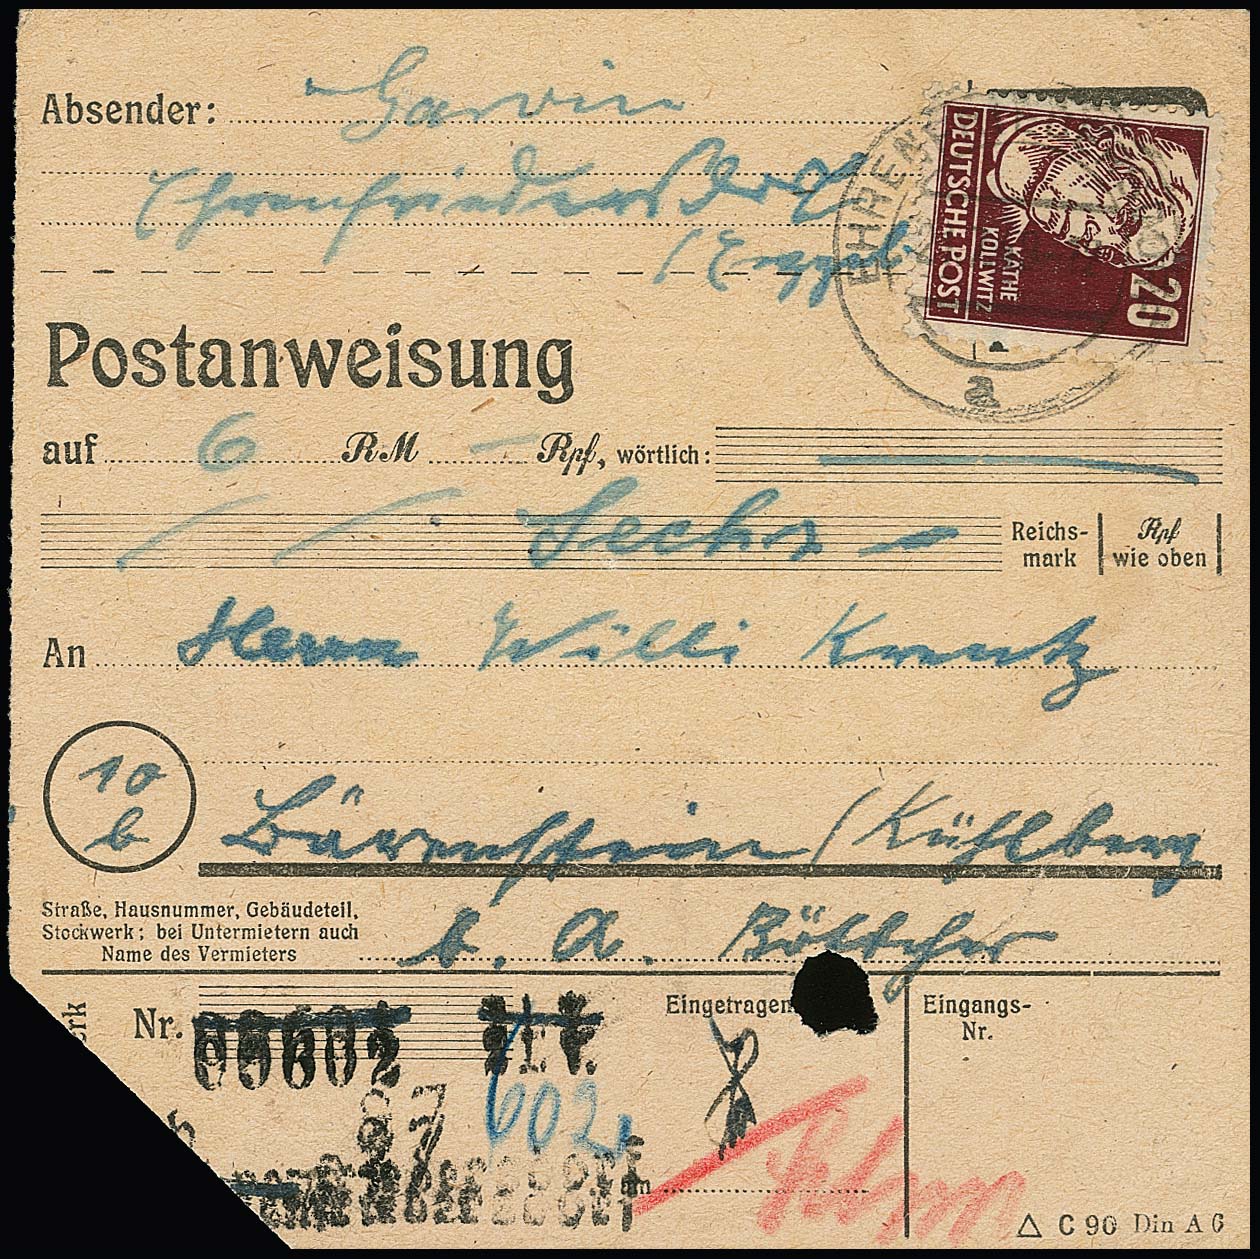 Absender: Garvin
Ehrenfriedersdorf
/Erzgeb.
DEUTSCHE POST
KÄTHE
KOLLWITZ
20
EHREN
a
Postanweisung
auf 6 RM – Rpf, wörtlich:
Sechs – Reichs-
mark
Rpf
wie oben
An Herrn Willi Kreutz
10
b
Bärenstein / Kühlberg
Straße, Hausnummer, Gebäudeteil,
Stockwerk; bei Untermietern auch
Name des Vermieters
b. A. Böttcher
Nr. 00602
Eingetragen
Eingangs-
Nr.
87
602
am
△ C 90 Din A 6